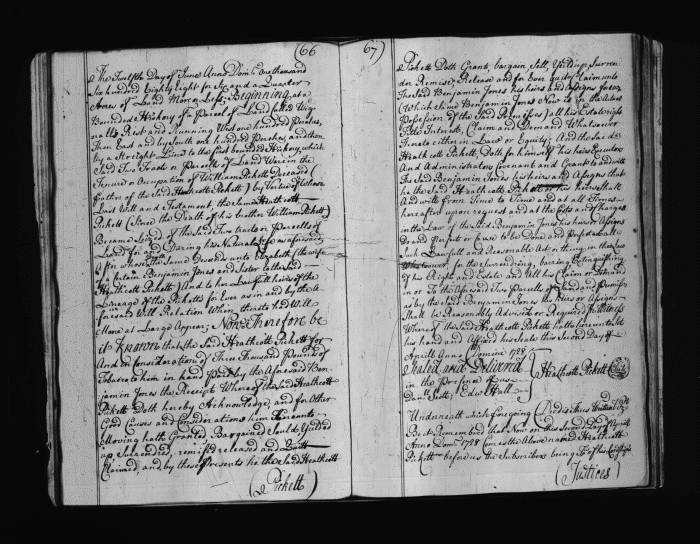 (66
The Twelfth Day of June Anno Dom: One thousand
Six hundred Eighty Eight for Six and a Quarter
Acres of Land More or Less; Beginning at a
Bounded Hickory of a Parcel of Land Called
Rest and Running West one hundred Perches,
Then East and by South one hundred Perches, and then
by a Streight Line to the first bounded Hickory, which
Said Two Tracts or Parcells of Land Was in the
Tenure or Occupation of William Pickett Deceased (
father of the Said Heathcott Pickett) by Vertue of Whose
Last Will and Testament the Same Heathcott
Pickett (Since the Death of his brother William Pickett)
Became Seized of the Said Two tracts or Parcells of
Land for and During his Natural Life as aforesaid
After whom the Same Descends unto Elizabeth (the wife
of a Certain Benjamin Jones and Sister to the Said
Heathcott Pickett) And to her Lawfull heirs of the
Lineage of the Picketts for Ever as in and by the
foresaid Will Relation When thereto had Will
More at Large Appear; Now Therefore be
it Known that the Said Heathcott Pickett for
And in Consideration of Three Thousand Pounds of
Tobacco to him in hand Paid by the Aforesaid Ben-
jamin Jones the Receipt Whereof the Said Heathcott
Pickett Doth hereby Acknowledge, and for Other
Good Causes and Considerations him thereunto
Moving hath Granted, Bargained Sould Yielded
up Surrendred, remised released and Quitt
Claimed, and by these Presents he the Said Heathcott
(Pickett)
67)
Pickett Doth Grant, bargain Sell, Yield up, Surren-
der Remise, Release and for Ever quitt Claim unto
The Said Benjamin Jones his heirs and Assigns for ever
(Which Same Benjamin Jones Now is in the Actual
Possession of the Said Premisses) all his Estate right
Title Interest, Claim and Demand Whatsoever
Thereto either in Law or Equity; And the Said
Heathcott Pickett, Doth for himself his heirs Executors
And Administrators Covenant and Grant to and with
the Said Benjamin Jones his heirs and Assigns that
he the Said Heathcott Pickett or his heirs Shall
And will from Time to Time and at all Times
hereafter upon request and at the Costs and Charges
in the Law of the Said Benjamin Jones his heirs or Assigns
Do and Perform or Cause to be Done and Performed all
Such Lawfull and Reasonable Act or thing in the Law
Whatsoever, for the Surrendring, barring Extinguishing
of his Right and Estate and all his Claim or Demand
in or To the Aforesaid Two Parcells of Land and Premisses
as by the Said Benjamin Jones his Heirs or Assigns
Shall be Reasonably Advised or Required In Witness
Whereof the Said Heathcott Pickett hath hereunto Set
his hand and Affixed his Seale this Second Day of
Aprill Anno Domine 1728
Sealed and Delivered
in the Presence of us
Dan: Scott; Edw: Hall
Heathcott Pickett
Underneath which foregoing Deed is thus
Be it Remembred that Now on this Second Day of Aprill
Anno Dom: 1728 Comes the Above named Heathcott
Pickett before us the Subscribers being of his
(Justices)